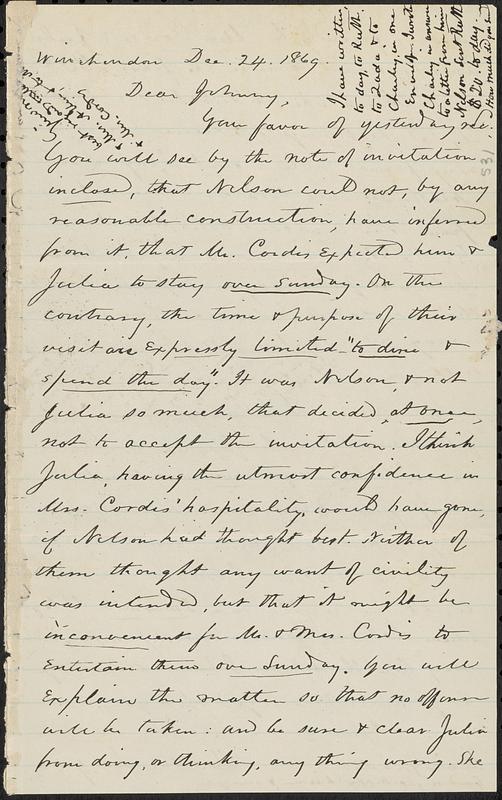 Winchendon Dec. 24. 1869.
Dear Johnny,
Your favor of yesterday rec.
You will see by the note of invitation
inclosed, that Nelson could not, by any
reasonable construction, have inferred
from it, that Mr. Cordis expected him &
Julia to stay over Sunday. On the
contrary, the time & purpose of their
visit are expressly limited "to dine &
spend the day". It was Nelson, & not
Julia so much, that decided, at once,
not to accept the invitation. I think
Julia, having the utmost confidence in
Mrs. Cordis' hospitality, would have gone,
if Nelson had thought best. Neither of
them thought any want of civility
was intended, but that it might be
inconvenient for Mr. & Mrs. Cordis to
entertain them over Sunday. You will
explain the matter so that no offense
will be taken: and be sure & clear Julia
from doing, or thinking, any thing wrong. She
I have written
to day to Ruth
to Zada & to
Charley, in one
Envelope. I wrote
Charley in answer
to a letter from him
Nelson sent Ruth
$20. to day.
How much did you send
& Mrs. Cordis